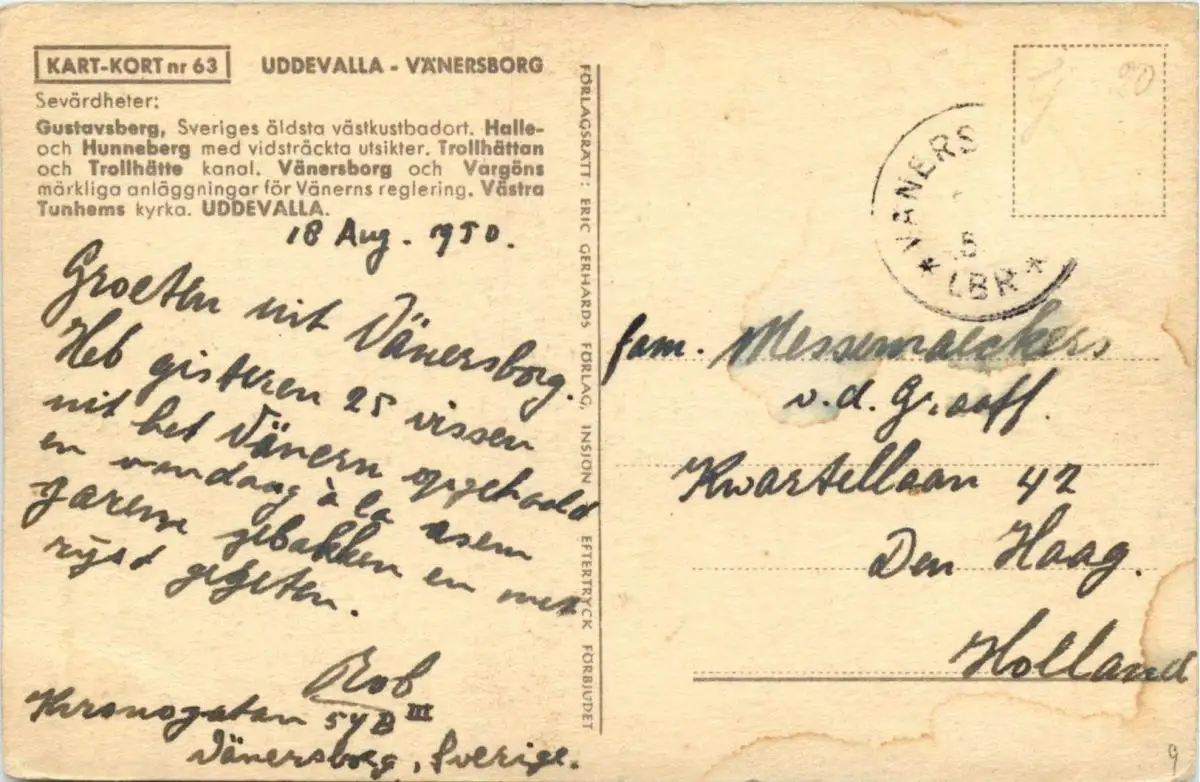 KART-KORT nr 63 UDDEVALLA - VÄNERSBORG
Sevärdheter:
Gustavsberg, Sveriges äldsta västkustbadort. Halle-
och Hunneberg med vidsträckta utsikter. Trollhättan
och Trollhätte kanal. Vänersborg och Vargöns
märkliga anläggningar för Vänerns reglering. Västra
Tunhems kyrka. UDDEVALLA.
18 Aug. 1950.
Groeten uit Vänersborg.
Heb gisteren 25 vissen
uit het Vänern opgehaald
en vandaag à la asem
garem gebakken en met
ryst gegeten.
Rob
Kronogatan 54B III
Vänersborg, Sverige.
FÖRLAGSRÄTT: ERIC GERHARDS FÖRLAG, INSJÖN EFTERTRYCK FÖRBJUDET
VÄNERS
5
* LBR *
20
fam. Messemaeckers
v.d. Graaff.
Kwartellaan 42
Den Haag.
Holland
9